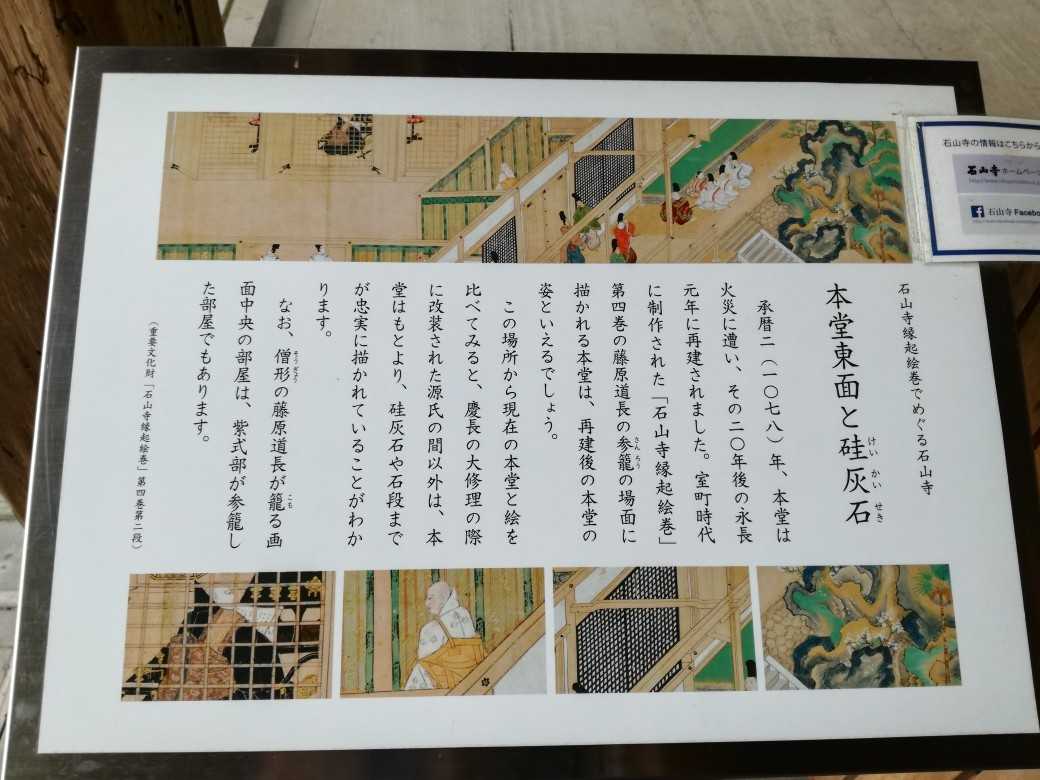 石山寺縁起絵巻でめぐる石山寺
本堂東面と硅灰石
けい かい せき
承暦二（一〇七八）年、本堂は
火災に遭い、その二〇年後の永長
元年に再建されました。室町時代
に制作された「石山寺縁起絵巻」
第四巻の藤原道長の参籠の場面に
さんろう
描かれる本堂は、再建後の本堂の
姿といえるでしょう。
この場所から現在の本堂と絵を
比べてみると、慶長の大修理の際
に改装された源氏の間以外は、本
堂はもとより、硅灰石や石段まで
が忠実に描かれていることがわか
ります。
なお、僧形の藤原道長が籠る画
そうぎょう
こも
面中央の部屋は、紫式部が参籠し
た部屋でもあります。
（重要文化財「石山寺縁起絵巻」第四巻第二段）
石山寺の情報はこちらから
石山寺 ホームページ
石山寺 Facebo